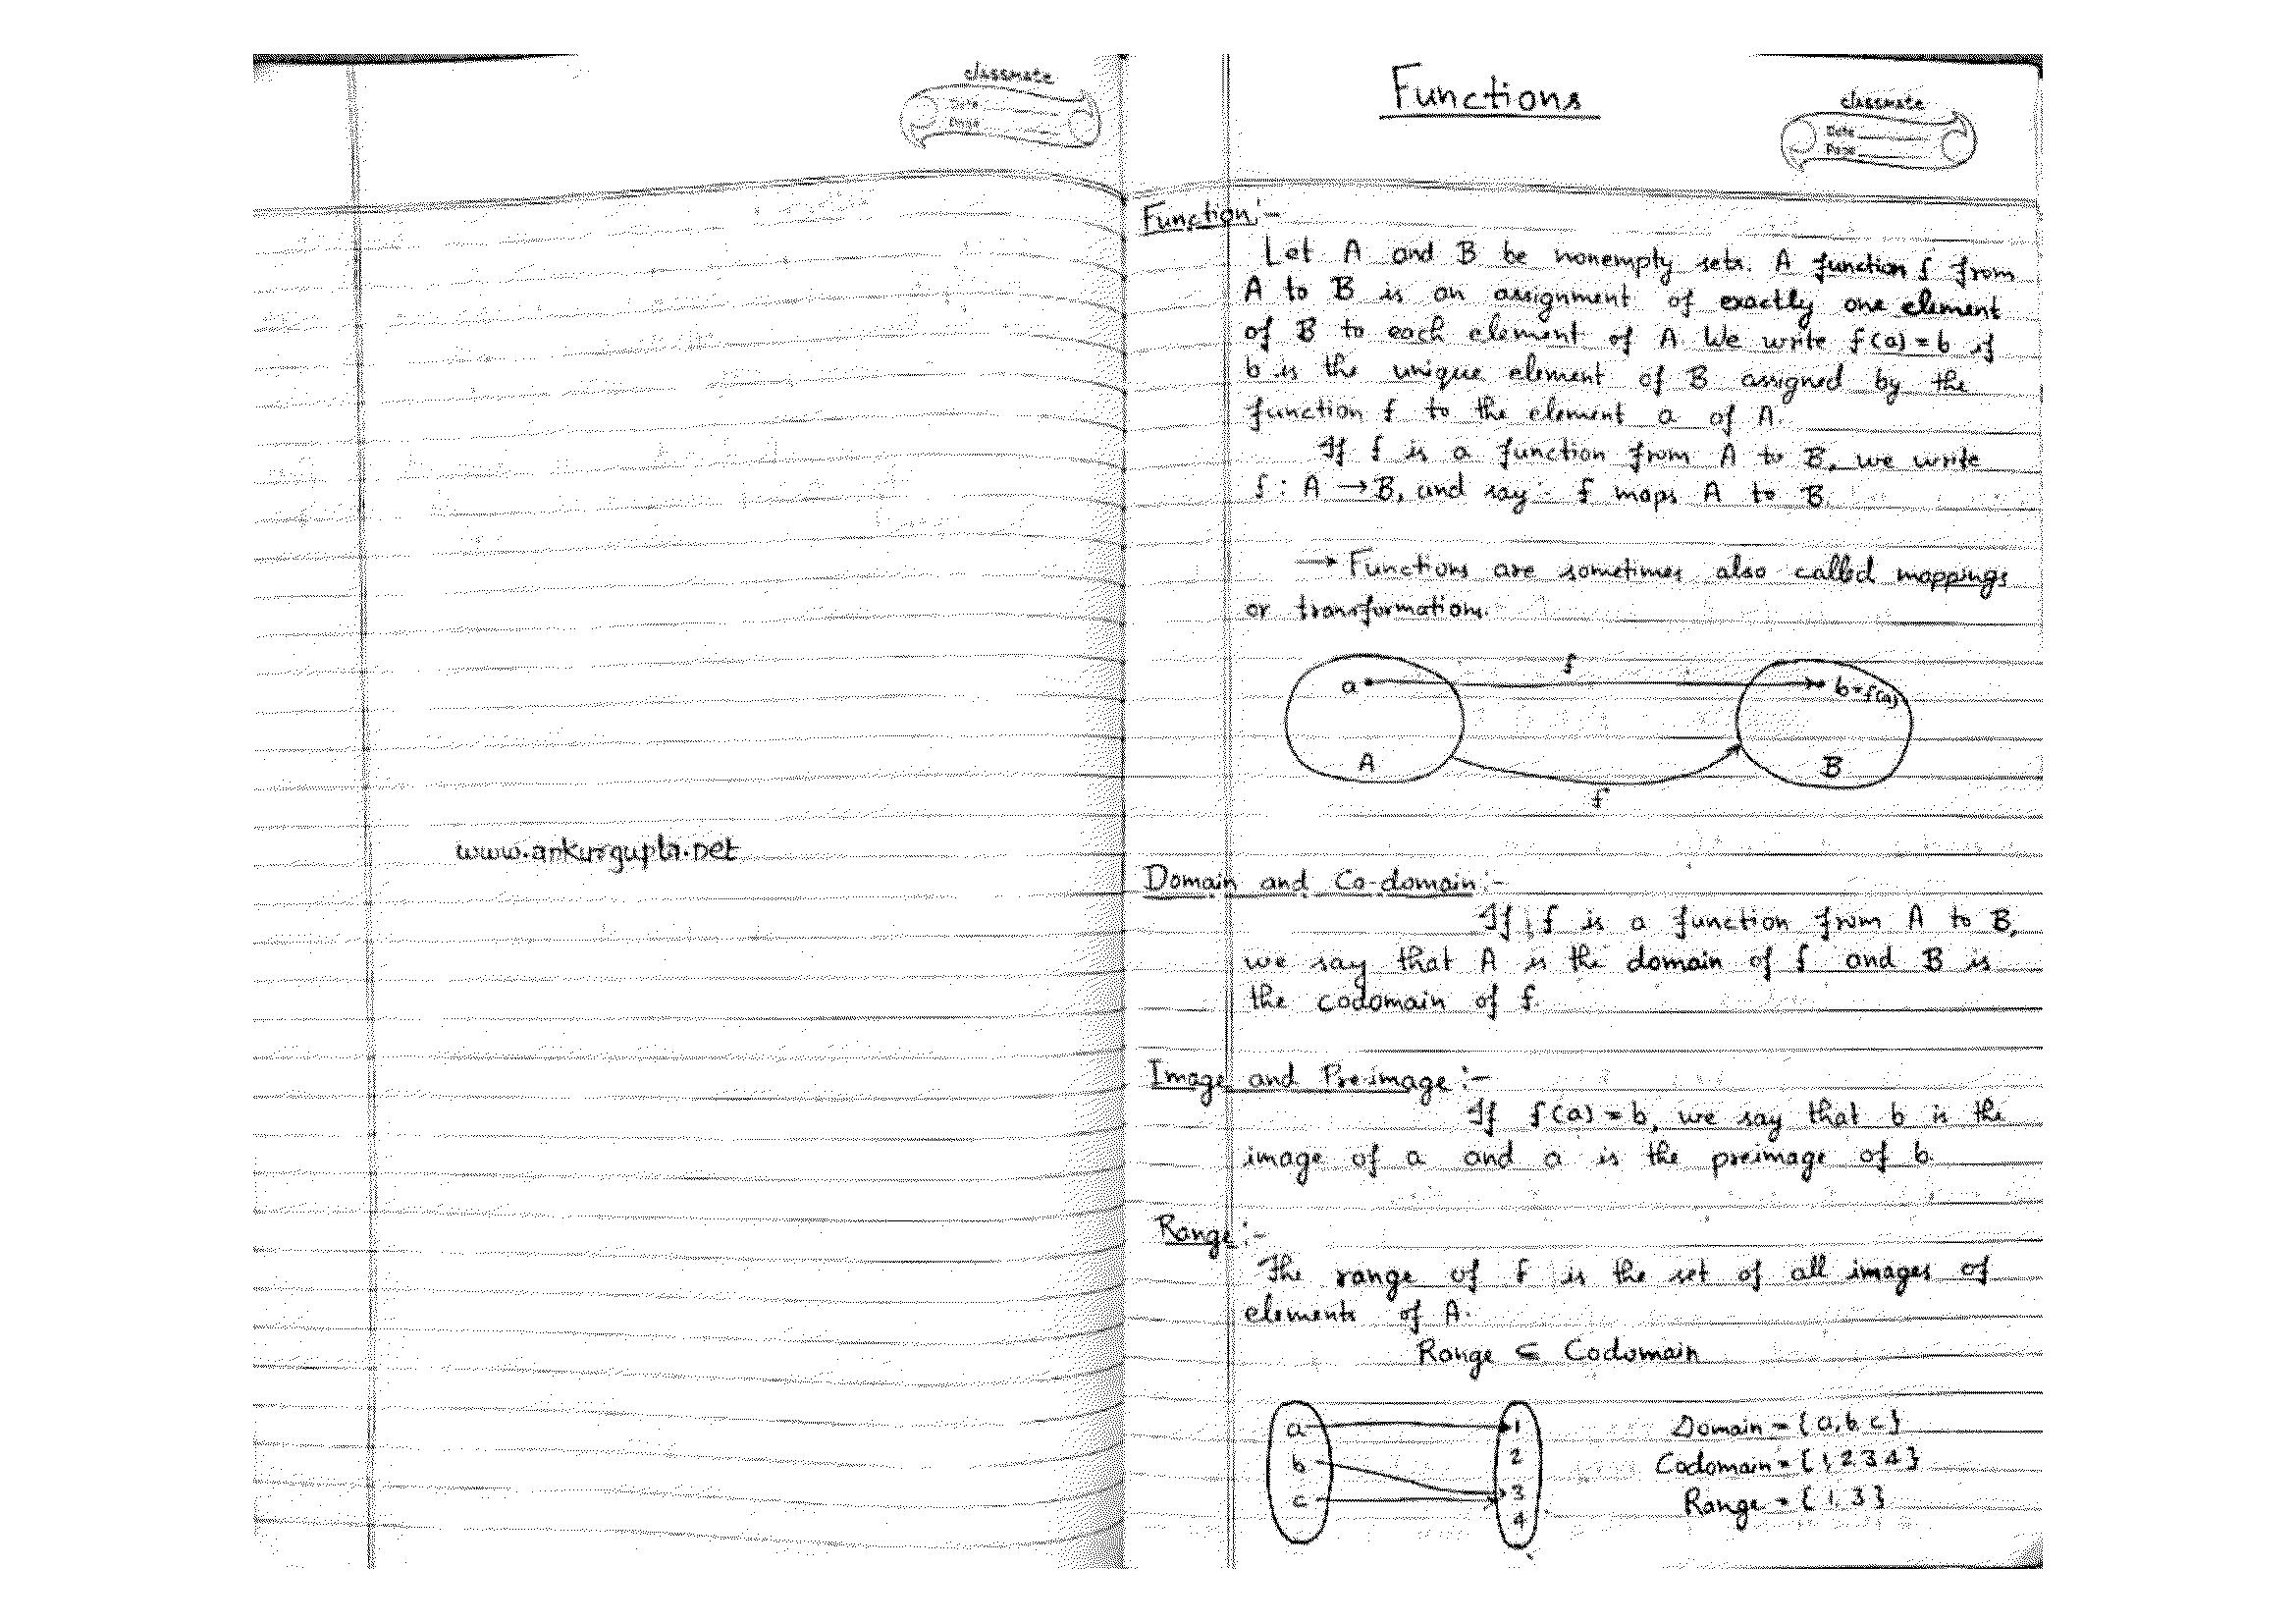 classmate
Date
Page
www.ankurgupta.net
Functions
classmate
Date
Page
Function:-
Let A and B be nonempty sets. A function f from
A to B is an assignment of exactly one element
of B to each element of A. We write f(a) = b if
b is the unique element of B assigned by the
function f to the element a of A.
If f is a function from A to B, we write
f : A → B, and say :- f maps A to B.
→ Functions are sometimes also called mappings
or transformations.
f
a b=f(a)
A B
f
Domain and Co-domain:-
If f is a function from A to B,
we say that A is the domain of f and B is
the codomain of f.
Image and Preimage :-
If f(a) = b, we say that b is the
image of a and a is the preimage of b.
Range:-
The range of f is the set of all images of
elements of A.
Range ⊆ Codomain
a 1 Domain = {a, b, c}
b 2 Codomain = {1, 2 3 4}
c 3 Range = {1, 3}
4